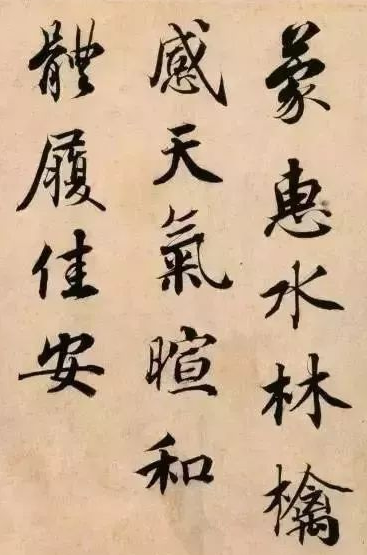 蒙惠水林檎
感天氣暄和
體履佳安